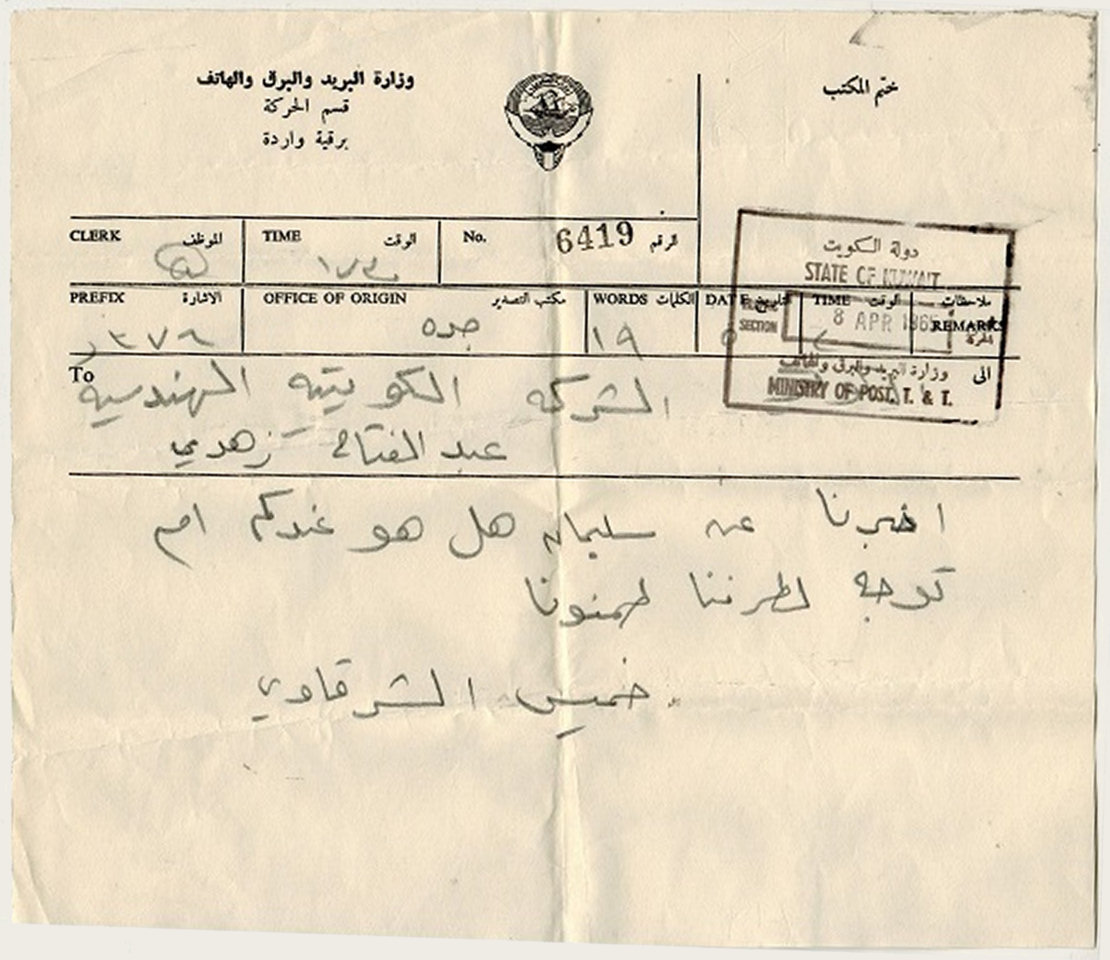 وزارة البريد والبرق والهاتف
قسم الحركة
برقية واردة
ختم المكتب
CLERK الموظف TIME الوقت No. 6419 الرقم
دولة الكويت
STATE OF KUWAIT
PREFIX الاشارة OFFICE OF ORIGIN مكتب التصدير WORDS الكلمات DATE التاريخ TIME الوقت ملاحظات REMARKS
SECTION 8 APR 1965
جده ١٩
وزارة البريد والبرق والهاتف
MINISTRY OF POST, T. & T.
To الى
الشركه الكويتيه الهندسية
عبد الفتاح زهدي
اخبرنا عن سليمان هل هو عندكم ام
توجه لطرفنا طمنونا
خميس الشرقاوي